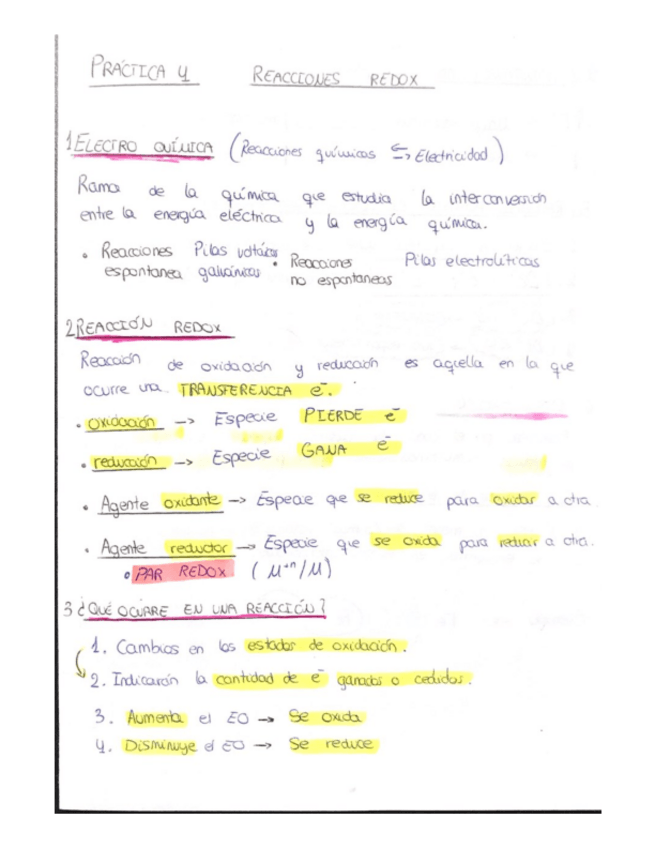 PRÁCTICA 4 REACCIONES REDOX
1 ELECTRO QUÍMICA (Reacciones químicas ⇆ Electricidad)
Rama de la química que estudia la interconversión
entre la energía eléctrica y la energía química.
• Reacciones Pilas voltáicas • Reacciones Pilas electrolíticas
espontanea galvánicas no espontaneas
2 REACCIÓN REDOX
Reacción de oxidación y reducción es aquella en la que
ocurre una TRANSFERENCIA e⁻.
• oxidación -> Especie PIERDE e⁻
• reducción -> Especie GANA e⁻
• Agente oxidante -> Especie que se reduce para oxidar a otra.
• Agente reductor -> Especie que se oxida para reducir a otra.
• PAR REDOX (M⁺ⁿ/M)
3 ¿QUÉ OCURRE EN UNA REACCIÓN?
1. Cambios en los estados de oxidación.
2. Indicarán la cantidad de e⁻ ganados o cedidos.
3. Aumenta el EO -> Se oxida
4. Disminuye el EO -> Se reduce